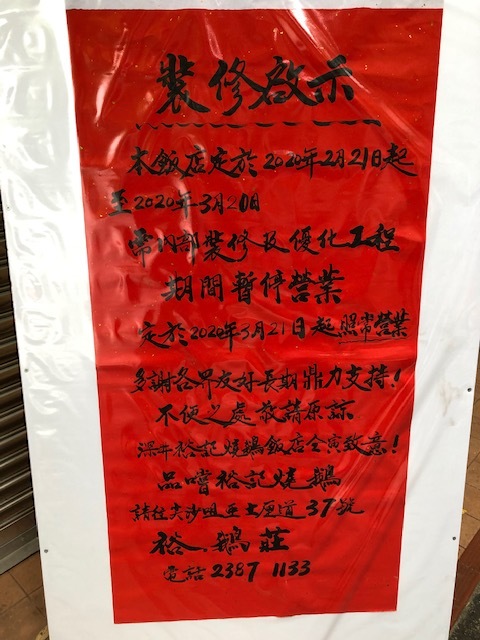 裝修啟示
本飯店定於2020年2月21日起
至2020年3月20日
需內部裝修及優化工程
期間暫停營業
定於2020年3月21日起照常營業
多謝各界友好長期鼎力支持!
不便之處敬請原諒
深井裕記燒鵝飯店仝寅致意!
品嚐裕記燒鵝
請往尖沙咀亞士厘道37號
裕鵝莊
電話23871133